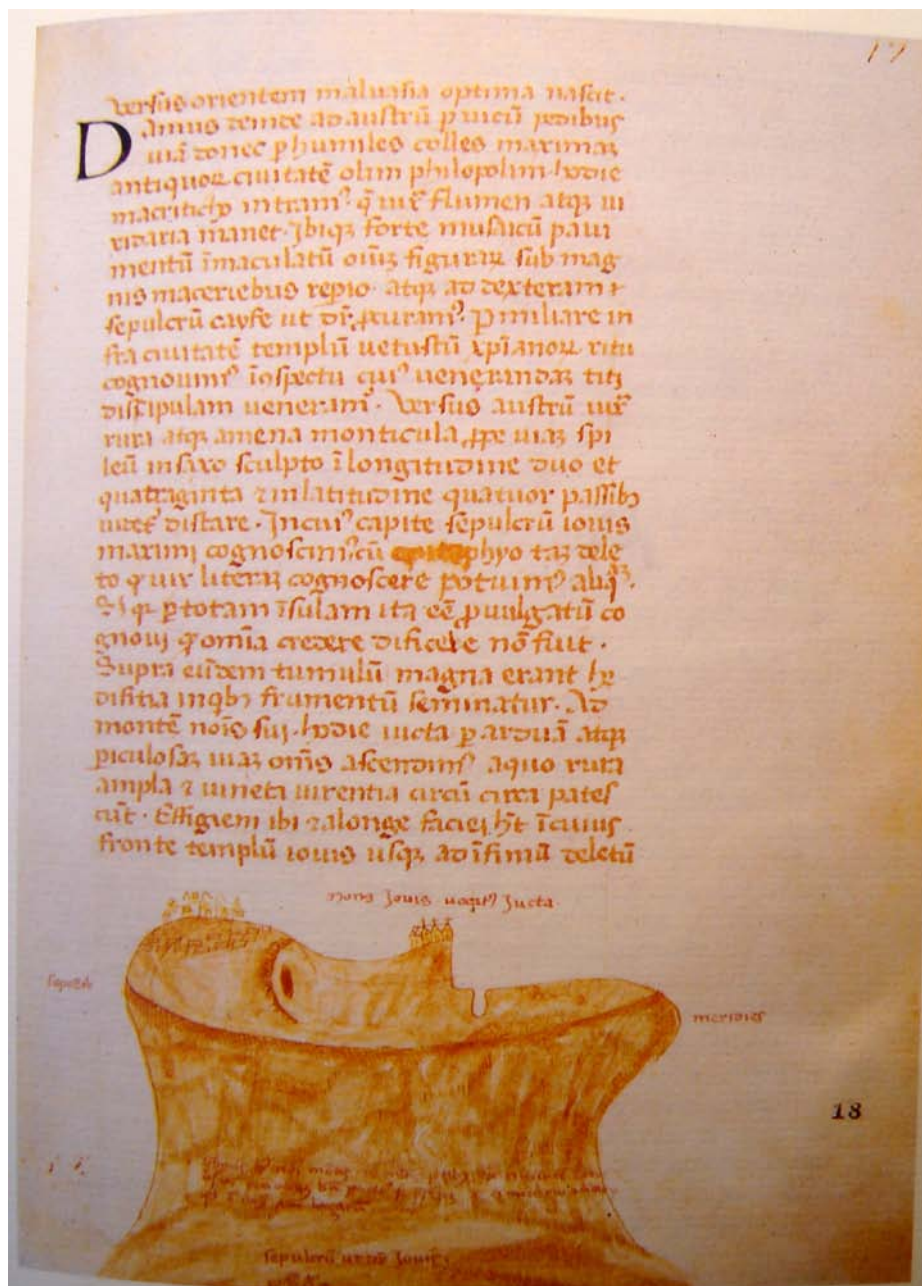 17
versus orientem maluasia optima nascit̄.
Damus deinde ad austrū p uicū pedibus
uiā donec p humiles colles maximaꝫ
antiquoꝝ ciuitatē olim philopolim hodie
macriticho intramꝰ. q̄ iuxͭ flumen atqꝫ ui
ridaria manet. Ibiqꝫ forte musaicū paui
mentū īmaculatū oīuꝫ figuraꝝ sub mag
nis maceriebus repio. atqꝫ ad dexteram
sepulcrū cayse ut dr̄. ꝓcuramꝰ. P miliare in
fra ciuitatē templū uetustū xp̄ianoꝝ ritu
cognouimꝰ īspectu cuiꝰ uenerandaꝫ titi
discipulam ueneramꝰ. Versus austrū iuxͭ
rura atqꝫ amena monticula ꝓpe uiaꝫ spi
leū in saxo sculpto ī longitudine duo et
quatraginta ⁊ in latitudine quatuor passibꝫ
distare. In cuiꝰ capite sepulcrū iouis
maximi cognoscimꝰ. cū epitaphyo taꝫ dele
to q uix literaꝫ cognoscere potuimꝰ aliq̄ꝫ.
p totam īsulam ita eē ꝓuulgatū co
gnoui qͥ omīa credere dificele nō fuit.
Supra eūdem tumulū magna erant hē
difitia in qbꝫ frumentū seminatur. Ad
montē noīs sui. hodie iucta p arduā atqꝫ
piculosaꝫ uiaꝫ om̄s ascendimꝰ a quo rura
ampla ⁊ uineta uirentia circū circa pates
cūt. Effigiem ibi ⁊ a longe faciei h̄t ī cuius
fronte templū iouis usqꝫ ad īfimū deletū
mons Jouis uocatꝰ Jucta.
meridies
18
sepulcrū ut dr̄ Jouis.